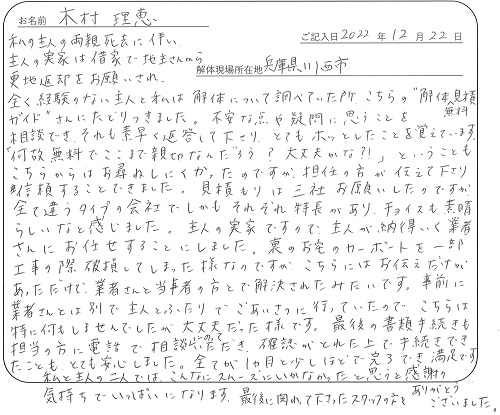 お名前 木村 理恵
ご記入日 2022年12月22日
私の主人の両親死去に伴い
主人の実家は借家で地主さんから
解体現場所在地 兵庫県川西市
更地返却をお願いされ、
全く経験のない主人と私は解体について調べていた所、こちらの"解体無料見積
ガイド"さんにたどりつきました。不安な点や疑問に思うことを
相談でき、それも素早く返答して下さり、とてもホッとしたことを覚えています。
「何故無料でここまで親切なんだろう？大丈夫かな?!」ということも
こちらからはお尋ねしにくかったのですが、担任の方が伝えて下さり
信頼することできました。見積もりは三社お願いしたのですが
全て違うタイプの会社でしかもそれぞれ特長があり、チョイスも素晴
らしいなと感じました。主人の実家ですので、主人が納得いく業者
さんにお任せすることにしました。裏のお宅のカーポートを一部
工事の際破損してしまった様なのですが、こちらにはお伝えだけが
あっただけで、業者さんと当事者の方とで解決されたみたいです。事前に
業者さんとは別で主人とふたりでごあいさつに行っていたので、こちらは
特に何もしませんでしたが大丈夫だった様です。最後の書類手続きも
担当の方に電話で相談にのっていただき、確認がとれた上で手続きでき
たことも、とても安心しました。全てが1カ月と少しほどで完了でき満足です。
私と主人の二人では、こんなにスムーズにいかなかったと思うと感謝の
気持ちでいっぱいになります。最後に関わて下さったスタッフの方々ありがとうございました。